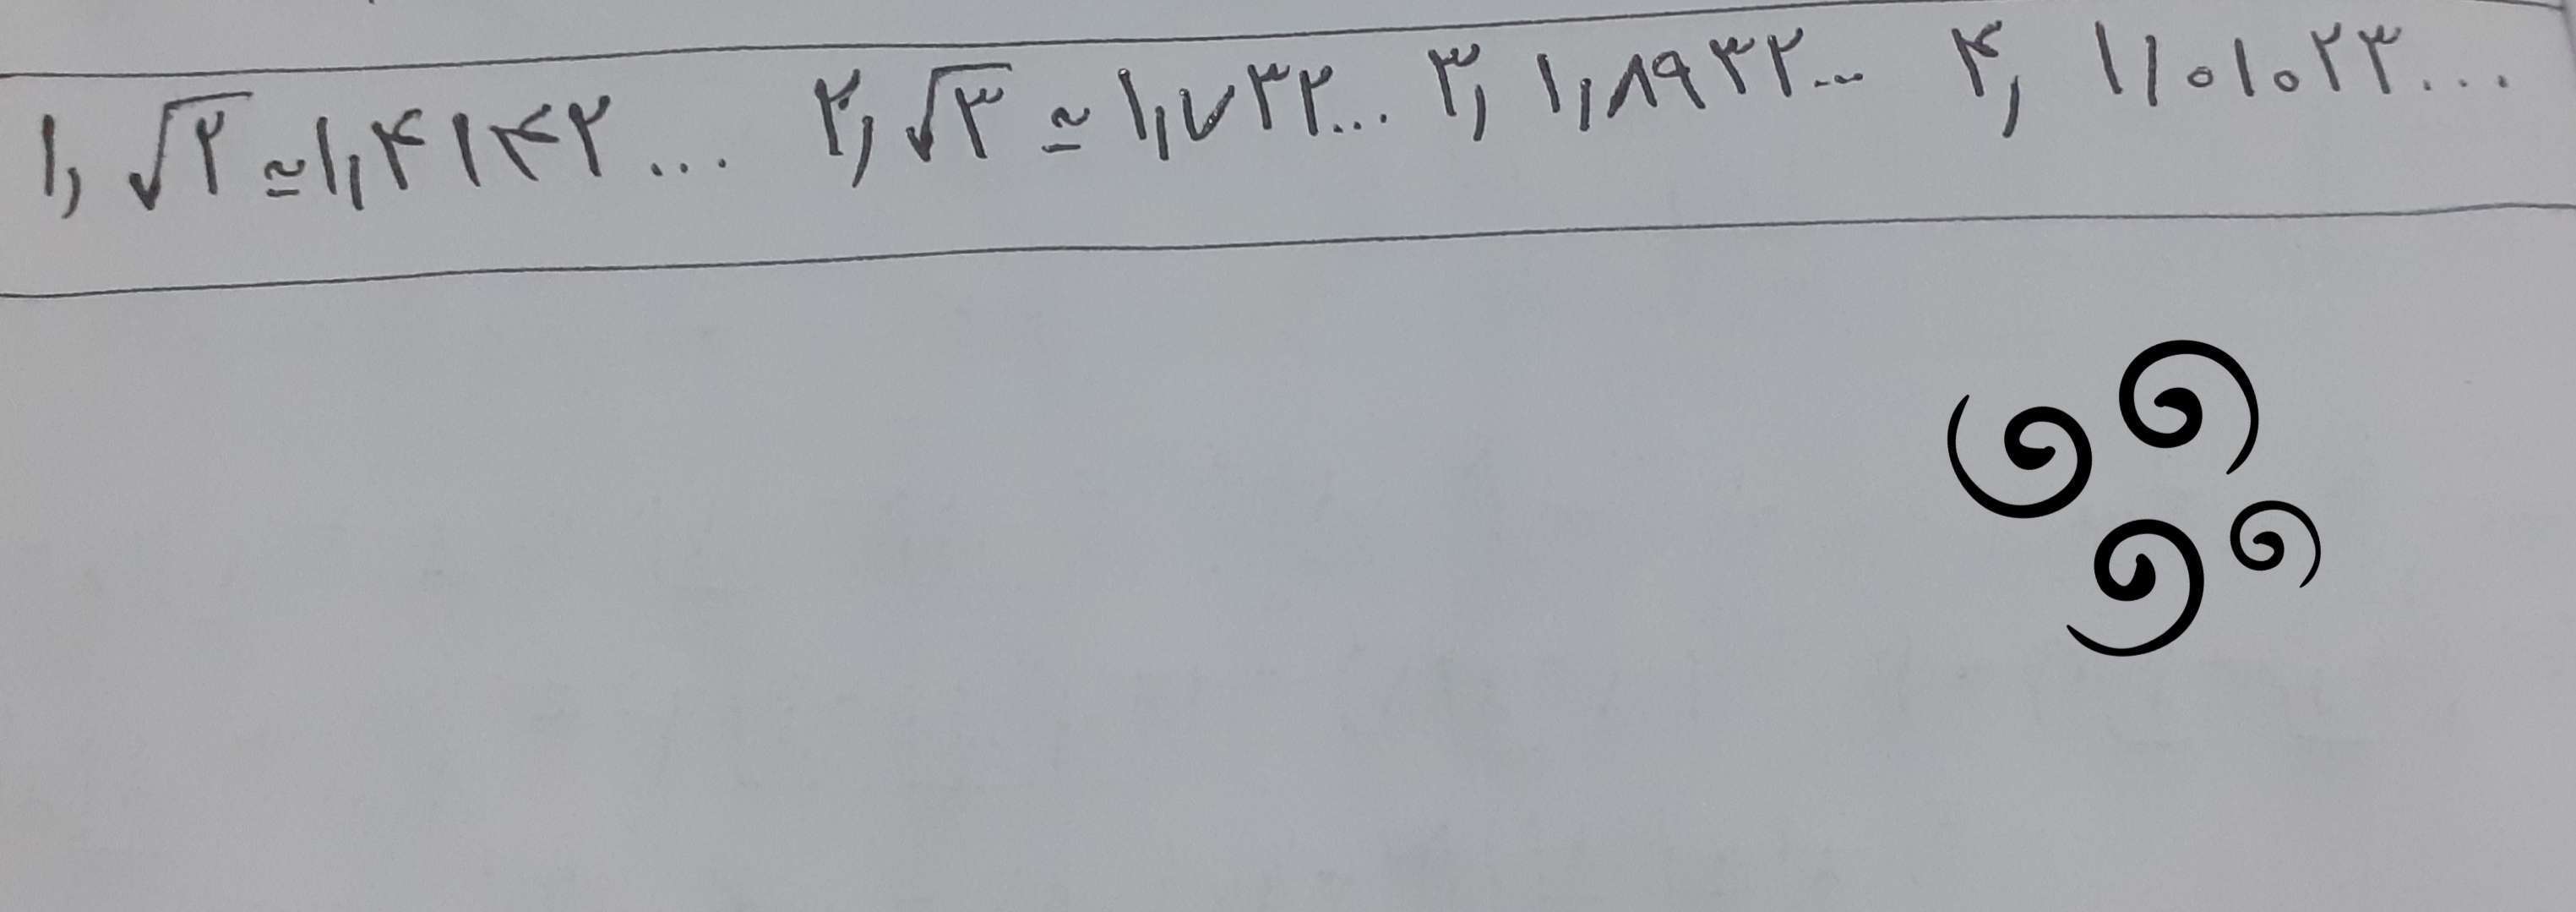 ۱, √۲ ≃ ۱,۴۱۴۲... ۲, √۳ ≃ ۱,۷۳۲... ۳, ۱,۸۹۳۲... ۴, ۱۱۰۱۰۲۳...